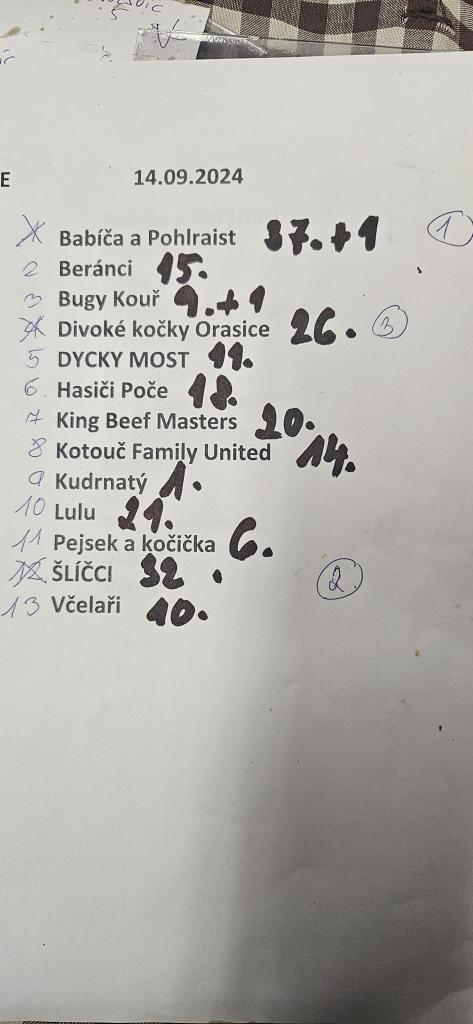 E 14.09.2024
1 Babíča a Pohlraist 37.+1 1
2 Beránci 15.
3 Bugy Kouř 9.+1
4 Divoké kočky Orasice 26. 3
5 DYCKY MOST 11.
6. Hasiči Poče 18.
7 King Beef Masters 20.
8 Kotouč Family United 14.
9 Kudrnatý 1.
10 Lulu 21.
11 Pejsek a kočička 6.
12 ŠLÍČCI 32. 2.
13 Včelaři 10.